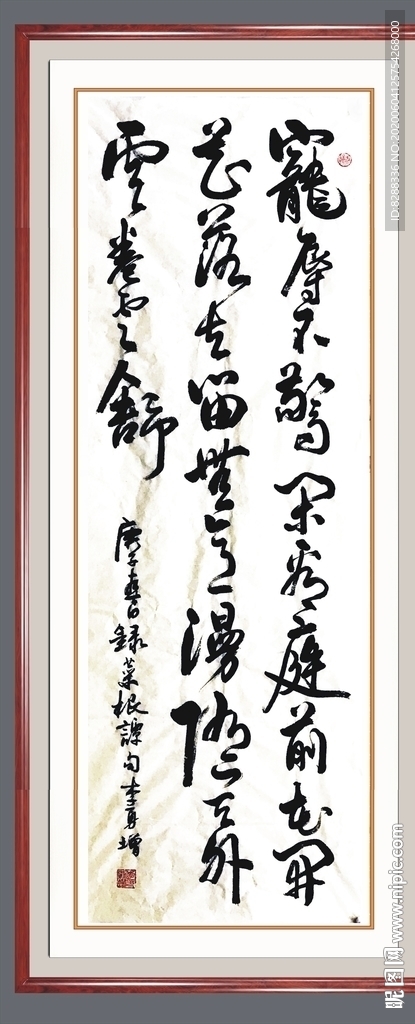 寵辱不驚閑看庭前花開
花落去留無意漫隨天外
雲卷雲舒
庚子春日錄菜根譚句
ID:8288336 NO:20200604125754268000
昵图网 www.nipic.com